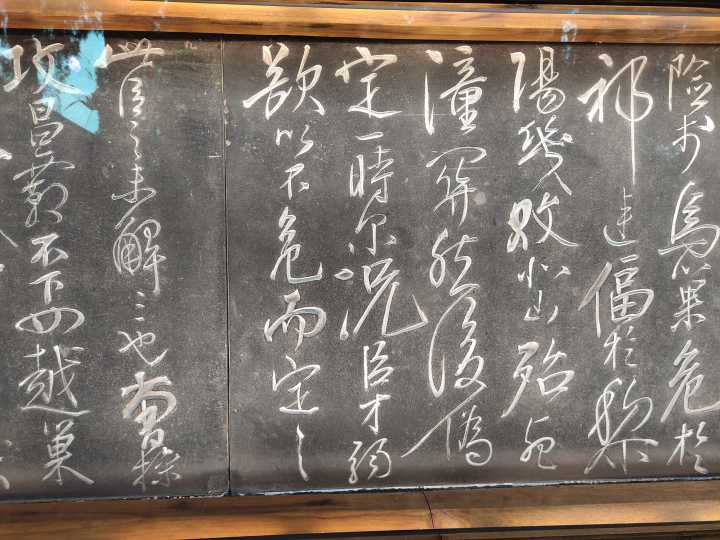 險於烏巢危於
祁連偪於黎
陽幾敗北山殆死
潼關然後偽
定一時爾況臣才弱
欲以不危而定之
此臣之未解三也曹操
攻昌霸不下四越巢